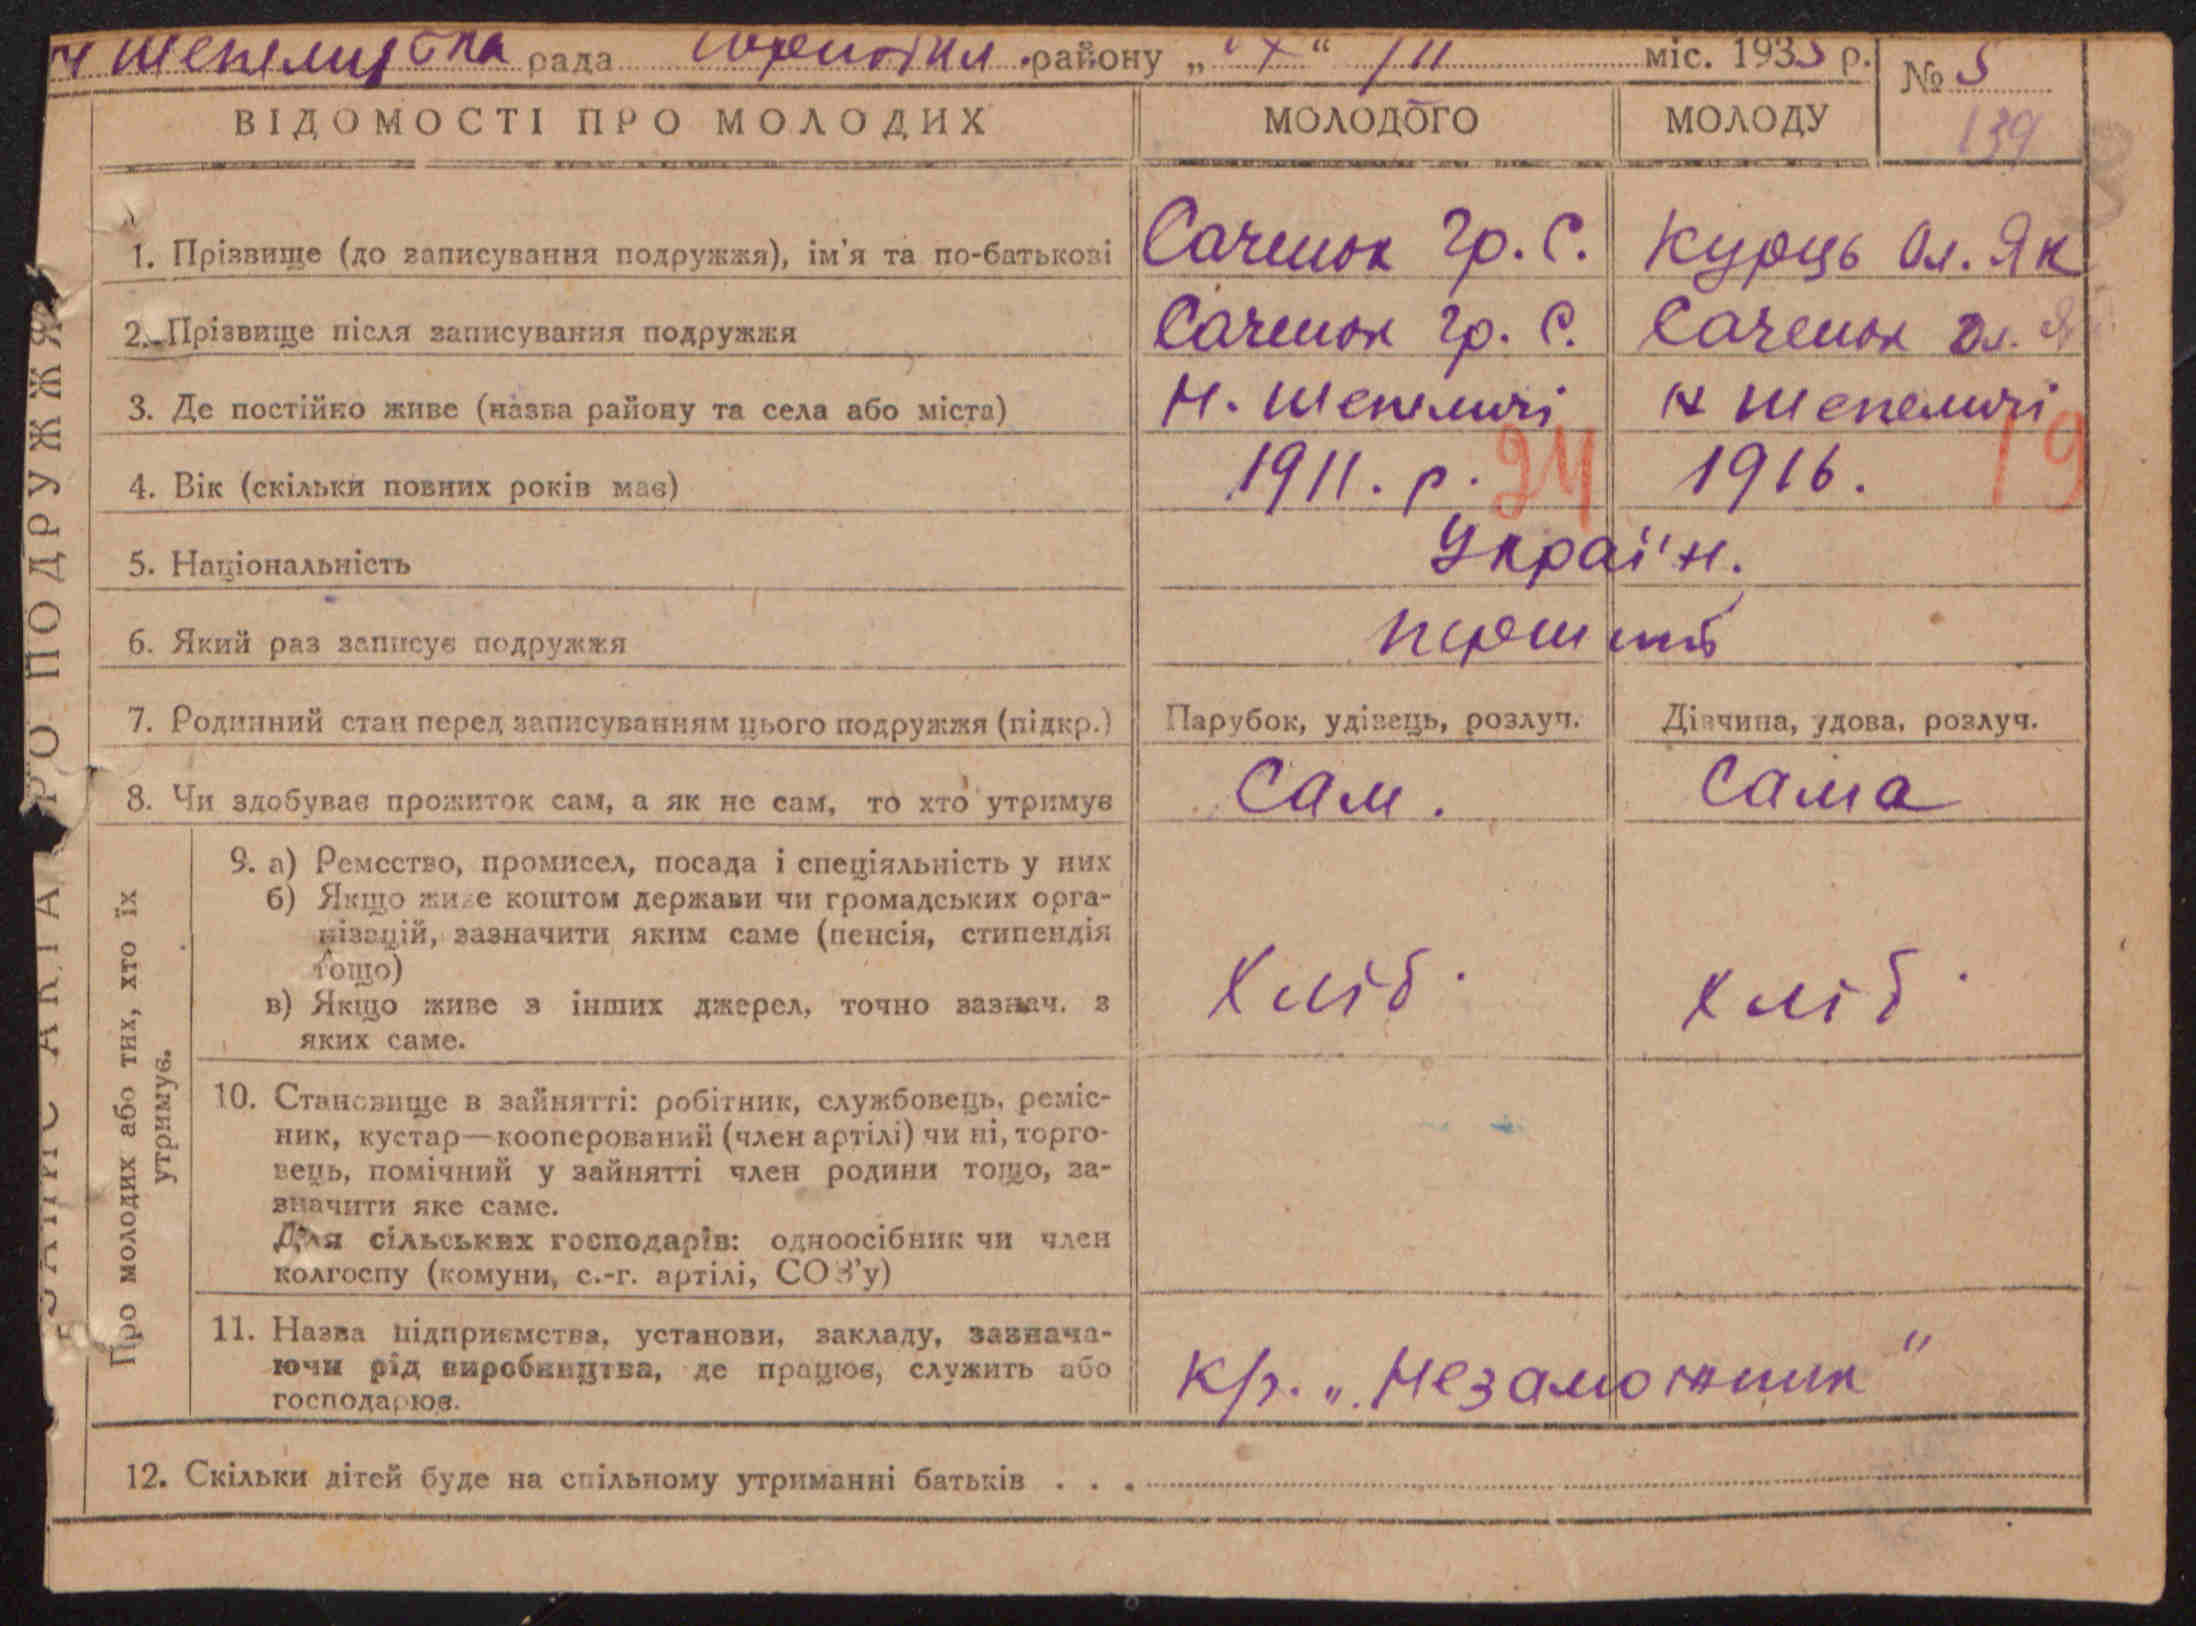 Н Шепелицька рада Чорнобил. району „X“ /II міс. 1935 р. № 5
139
ВІДОМОСТІ ПРО МОЛОДИХ МОЛОДОГО МОЛОДУ
1. Прізвище (до записування подружжя), ім'я та по-батькові Саченок Гр. С. Курць Ол. Як
2. Прізвище після записування подружжя Саченок Гр. С. Саченок Ол. Я
3. Де постійно живе (назва району та села або міста) Н. Шепеличі Н Шепеличі
4. Вік (скільки повних років має) 1911. р. 24 1916. 19
5. Національність Україн.
6. Який раз записує подружжя
7. Родинний стан перед записуванням цього подружжя (підкр.) Парубок, удівець, розлуч. Дівчина, удова, розлуч.
8. Чи здобуває прожиток сам, а як не сам, то хто утримує Сам. Сама
Про молодих або тих, хто їх
утримує.
9. а) Ремество, промисел, посада і спеціяльність у них
б) Якщо живе коштом держави чи громадських орга-
нізацій, зазначити яким саме (пенсія, стипендія
тощо)
в) Якщо живе з інших джерел, точно зазнач. з
яких саме.
Хліб. Хліб.
10. Становище в зайнятті: робітник, службовець, реміс-
ник, кустар—кооперований (член артілі) чи ні, торго-
вець, помічний у зайнятті член родини тощо, за-
значити яке саме.
Для сільських господарів: одноосібник чи член
колгоспу (комуни, с.-г. артілі, СОЗ'у)
11. Назва підприємства, установи, закладу, зазнача-
ючи рід виробництва, де працює, служить або
господарює.
Кр. „Незаможник"
12. Скільки дітей буде на спільному утриманні батьків . . .
ЗАПИС АКТА ПРО ПОДРУЖЖЯ